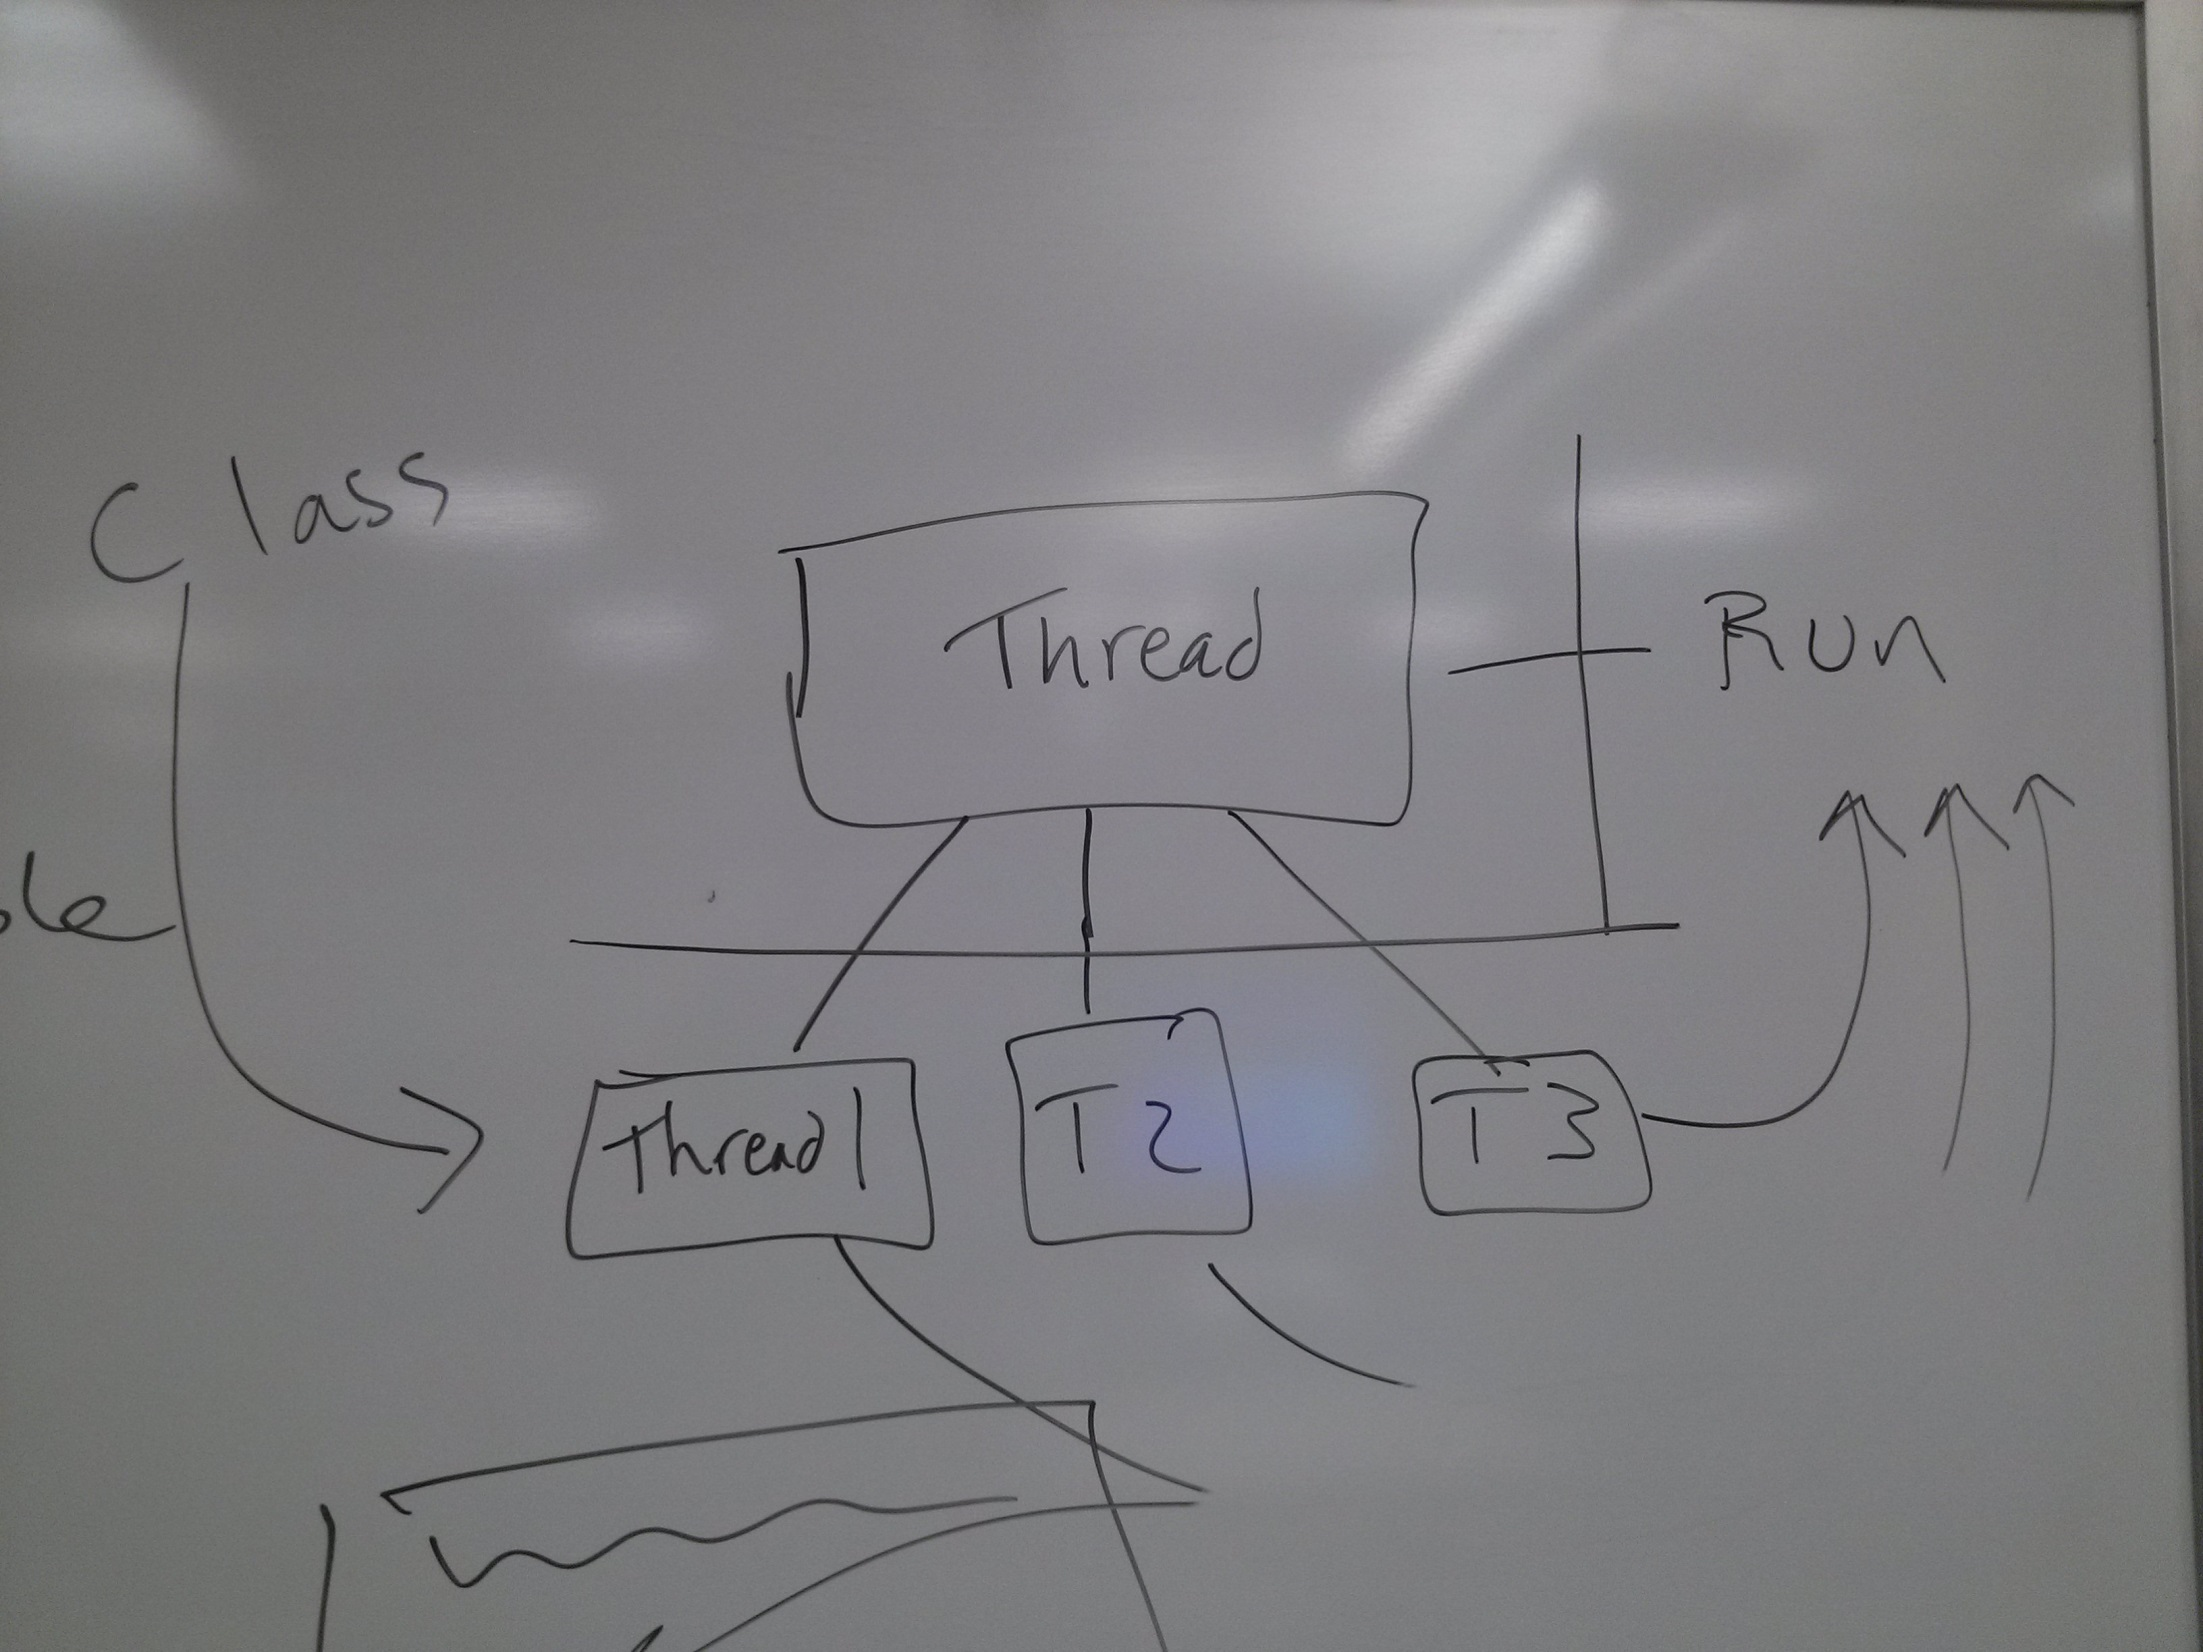 Class
Thread
Run
Thread1
T2
T3